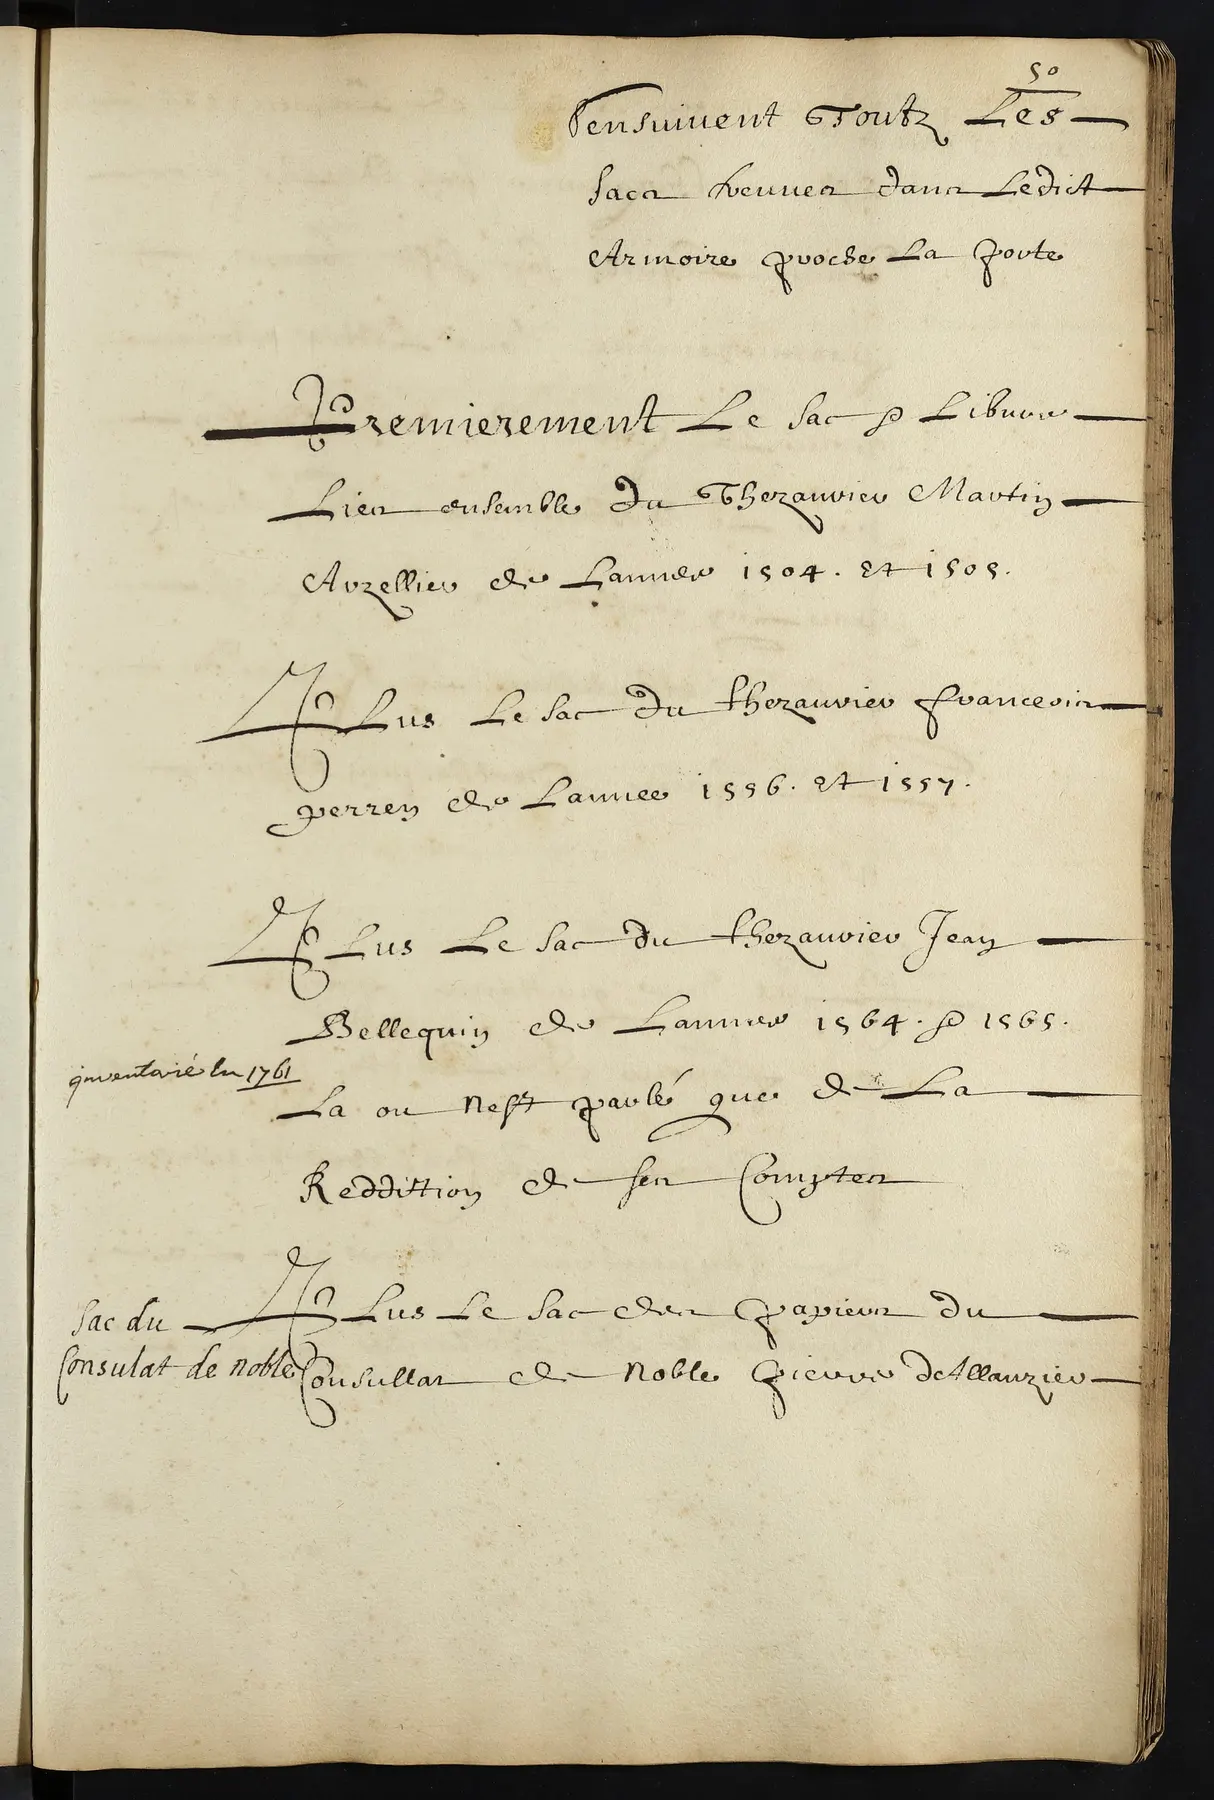 50
Sensuivent Toutz Les
sacz treuvez dans Ledict
Armoire proche La porte
Premierement Le sac & Libvre
Liez ensemble du Thezaurier Martin
Arzellier de Lannee 1504. et 1505.
Plus Le sac du thezaurier francois
perren de Lannee 1556. et 1557.
Plus Le sac du thezaurier Jean
Bellequin de Lannee 1564. & 1565.
inventarié en 1761
La ou nest parlé que de La
Reddittion de ses Comptes
Plus Le sac des papiers du
Consullat de noble pierre deAllauzier
sac du
Consulat de noble